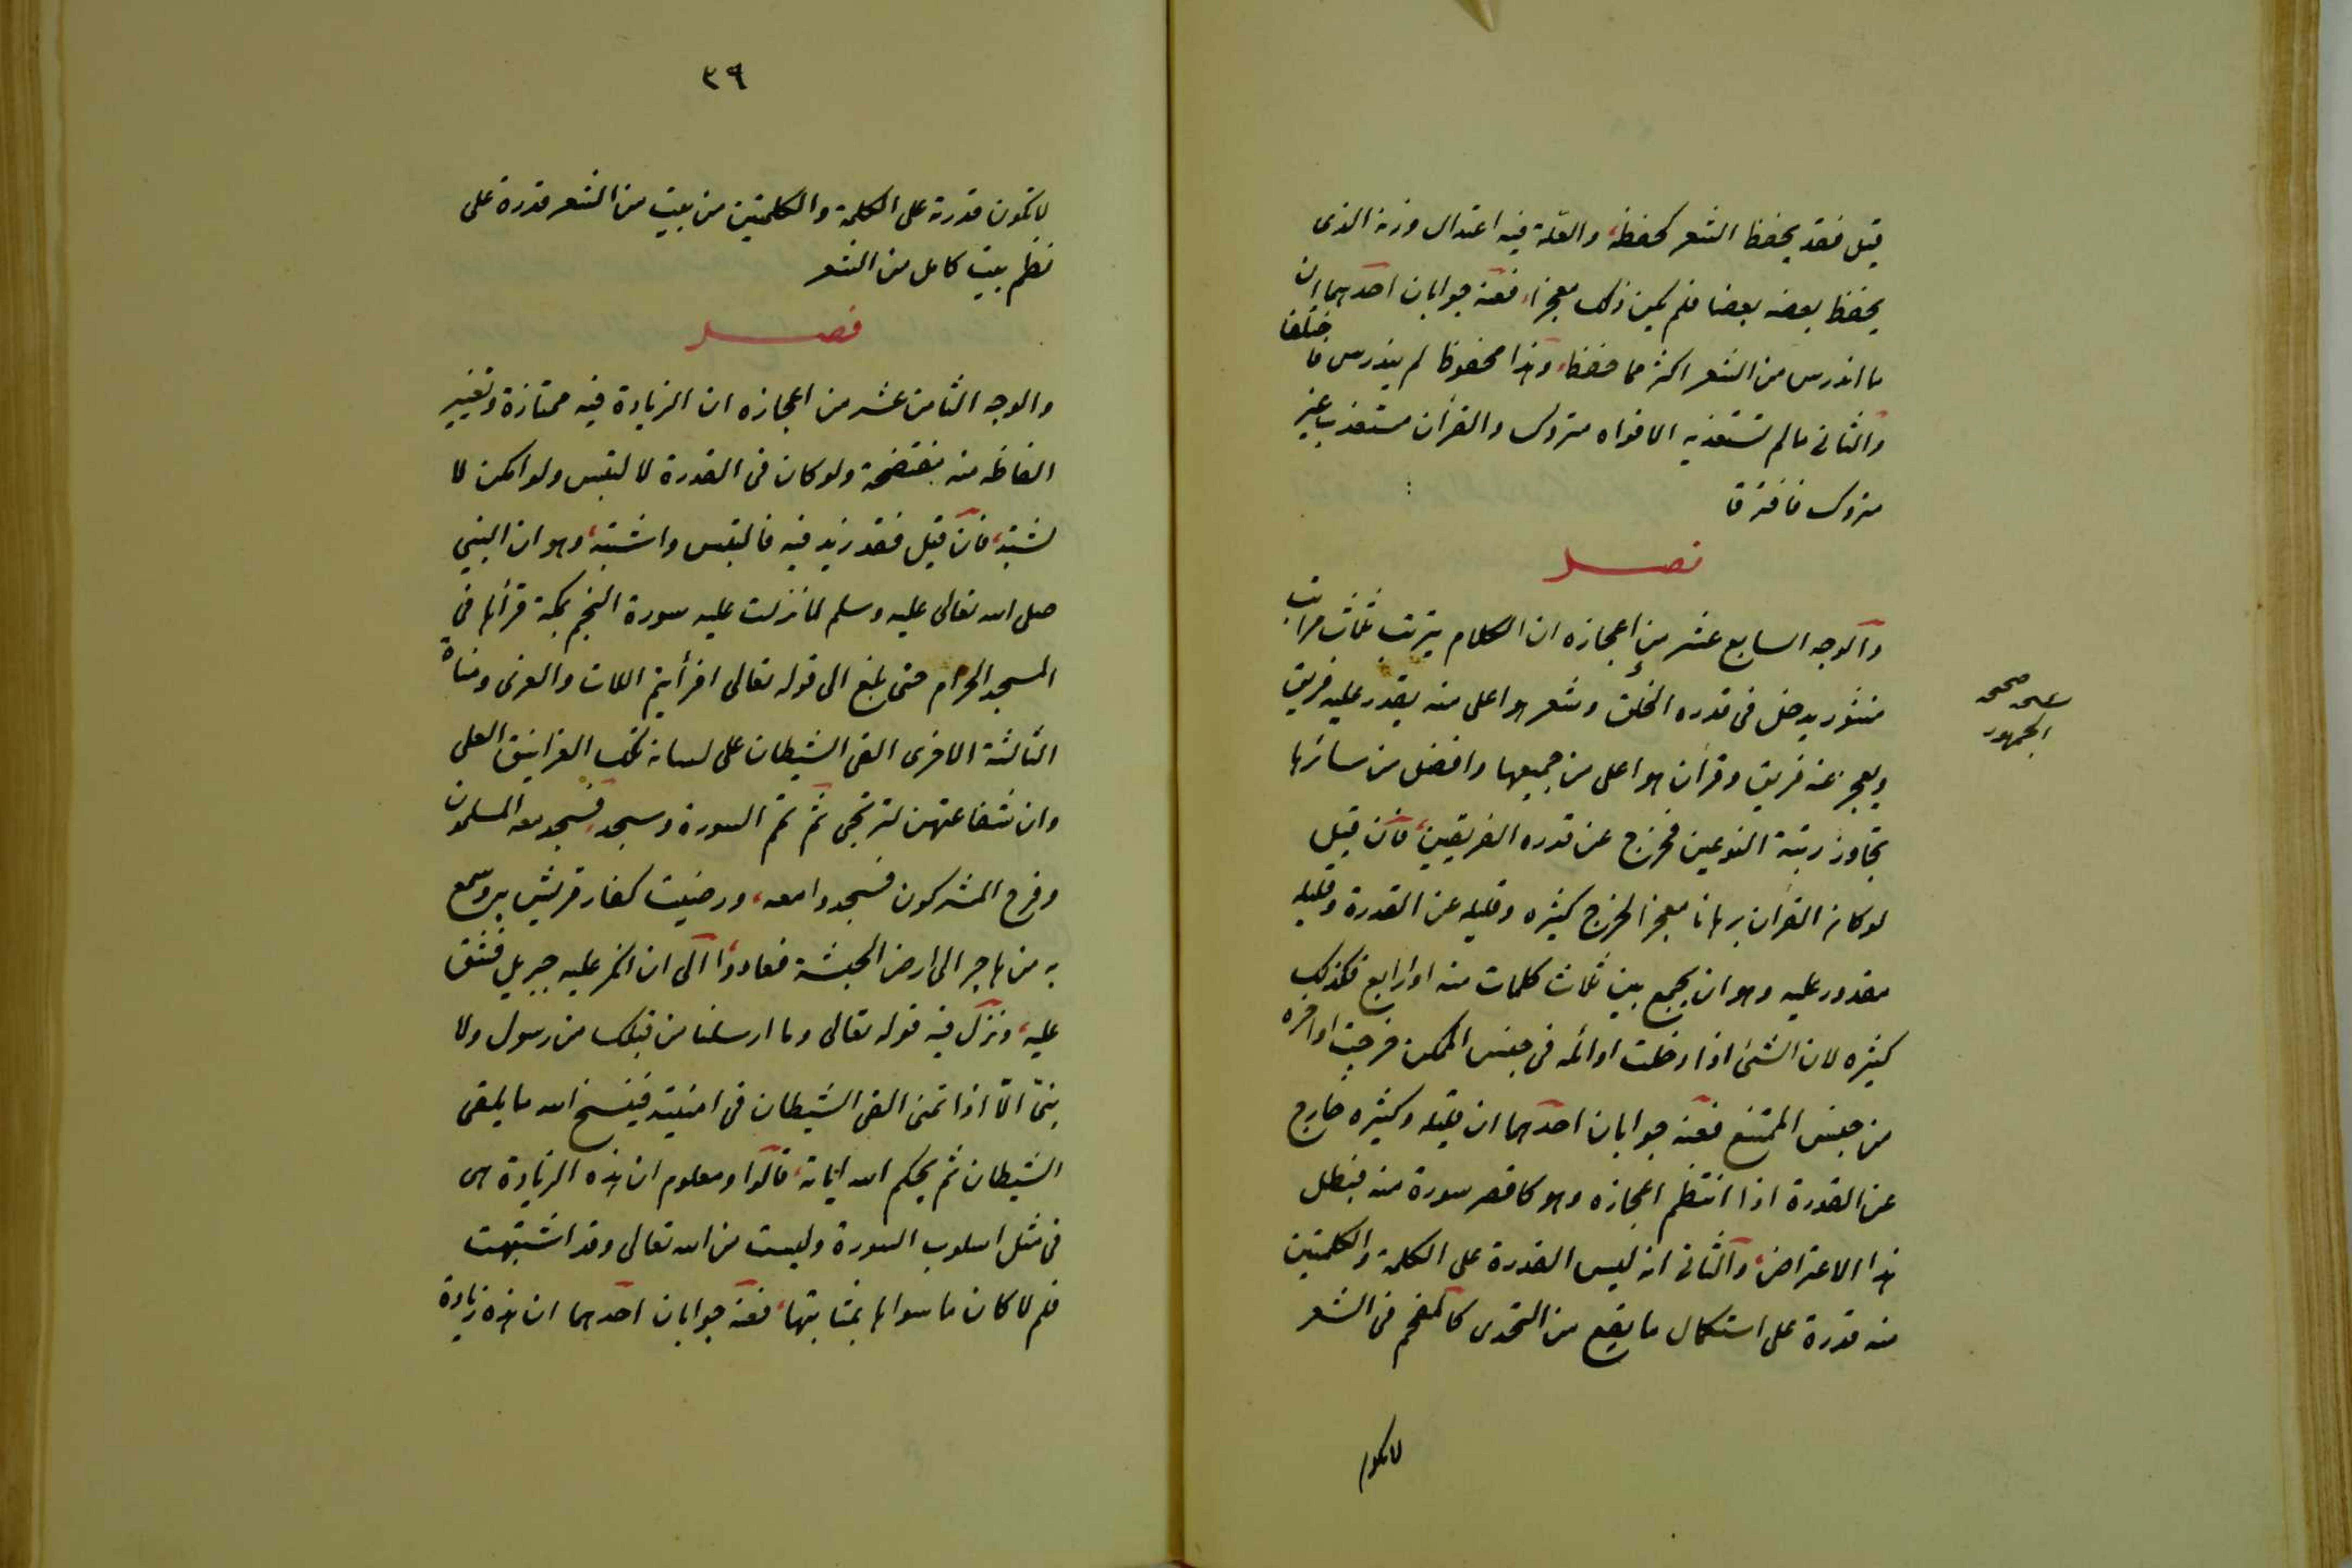 قيل فقد يحفظ الشعر كحفظه، والعلّة فيه اعتدال وزنه الذى
يحفظ بعضه بعضا فلم يكن ذلك معجزا، فعنه جوابان احدهما ان
ما اندرس من الشعر اكثر مما حفظ، وهذا محفوظ لم يندرس فاختلفا
والثانى ما لم تستعذبه الافواه متروك والقرآن مستعذب غير
متروك فافترقا
فصل
والوجه السابع عشر من إعجازه ان الكلام يترتب ثلاث مراتب
منثور يدخل فى قدره الخلق وشعر هو اعلى منه يقدر عليه فريق
ويعجز عنه فريق وقرآن هو اعلى من جميعها وافضل من سائرها
تجاوز رتبة النوعين فخرج عن قدره الفريقين، فان قيل
لو كان القرآن برهانا معجزا لخرج كثيره وقليله عن القدرة وقليله
مقدور عليه وهو ان يجمع بين ثلاث كلمات منه او اربع فكذلك
كثيره لان الشئ اذا دخلت اوائله فى جنس الممكن خرجت اواخره
من جنس الممتنع فعنه جوابان احدهما ان قليله وكثيره خارج
عن القدرة اذا انتظم اعجازه وهو كاقصر سورة منه فبطل
هذا الاعتراض، والثانى انه ليس القدرة على الكلمة والكلمتين
منه قدرة على استكمال ما يقع من التحدى كالمفحم فى الشعر
لا تكون
الجمهور
٣٩
لا تكون قدرته على الكلمة والكلمتين من بيت من الشعر قدرة على
نظم بيت كامل من الشعر
فصل
والوجه الثامن عشر من اعجازه ان الزيادة فيه ممتازة وتغيير
الفاظه منه مفتضحة ولو كان فى القدرة لالتبس ولو امكن لا
لشتبه، فان قيل فقد زيد فيه فالتبس واشتبه، وهو ان النبي
صلى الله تعالى عليه وسلم لما نزلت عليه سورة النجم بمكة قرأها فى
المسجد الحرام حتى بلغ الى قوله تعالى افرأيتم اللات والعزى ومناة
الثالثة الاخرى القى الشيطان على لسانه تلك الغرانيق العلى
وان شفاعتهن لترتجى ثم تم السورة وسجد، فسجد معه المسلمون
وفرح المشركون فسجدوا معه، ورضيت كفار قريش به وسمع
به من هاجر الى ارض الحبشة فعادوا، الى ان انكر عليه جبريل فشق
عليه، ونزل فيه قوله تعالى وما ارسلنا من قبلك من رسول ولا
نبىّ الّا اذا تمنى القى الشيطان فى امنيته فينسخ الله ما يلقى
الشيطان ثم يحكم الله اياته، قالوا ومعلوم ان هذه الزيادة هى
فى مثل اسلوب السورة وليست من الله تعالى وقد اشتبهت
فلم لا كان ما سواها بمثابتها، فعنه جوابان احدهما ان هذه زيادة